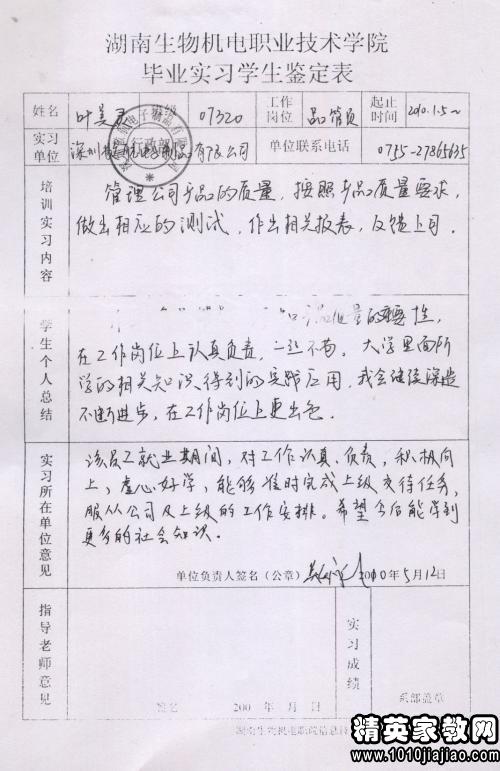 湖南生物机电职业技术学院
毕业实习学生鉴定表
姓名 叶美灵 班级 07320 工作岗位 品管员 起止时间 2010.1.5~
实习单位 深圳 有限公司 单位联系电话 0755-27865635
培训实习内容
管理公司产品的质量，按照产品质量要求，
做出相应的测试，作出相关报表，反馈上司．
学生个人总结
质量的重要性，
在工作岗位上认真负责，一丝不苟。大学里面所
学的相关知识得到的实践应用，我会继续深造
不断进步，在工作岗位上更出色．
实习所在单位意见
该员工就业期间，对工作认真、负责，积极向
上，虚心好学，能够准时完成上级交待任务，
服从公司及上级的工作安排。希望今后能学到
更多的社会知识．
单位负责人签名（公章） 2010年5月12日
指导老师意见
签名 200 年 月 日
实习成绩
系部盖章
湖南生物机电职院信息
精英家教网
www.1010jiajiao.com